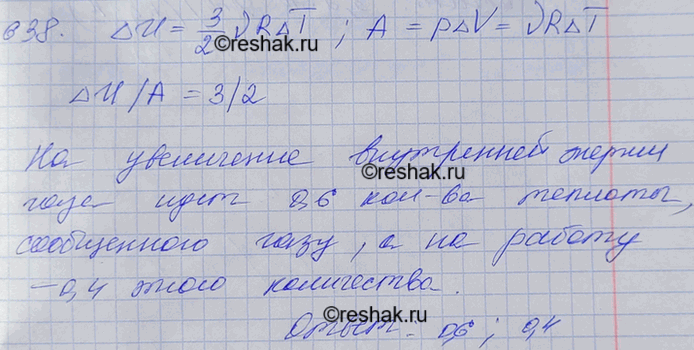 638. ΔU = 3/2 νRΔT ; A = pΔV = νRΔT
©reshak.ru
ΔU/A = 3/2
На увеличение внутренней энергии
газа идет 0,6 кол-ва теплоты,
©reshak.ru
сообщенного газу, а на работу
- 0,4 этого количества.
©reshak.ru
Ответ: 0,6 ; 0,4